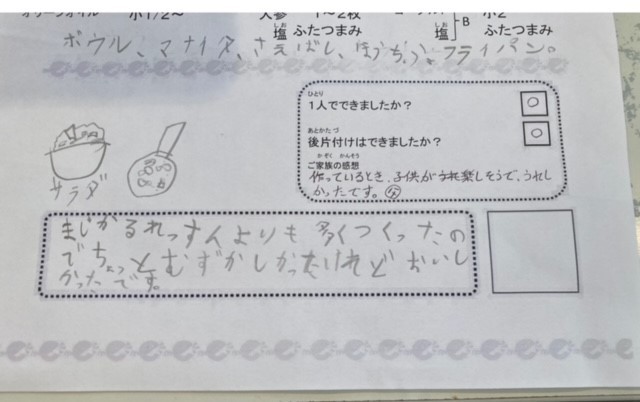 オリーブオイル 小1/2〜
人参 1〜2枚
塩 ふたつまみ
塩 B 小2
ふたつまみ
ボウル、マナイタ、さえばし、ほうちょう、フライパン。
ひとり
1人でできましたか？ ○
あとかたづ
後片付けはできましたか？ ○
かぞく かんそう
ご家族の感想
作っているとき、子供が楽しそうで、うれし
かったです。
サラダ
まじかるれっすんよりも多くつくったの
でちょっとむずかしかったけれどおいし
かったです。